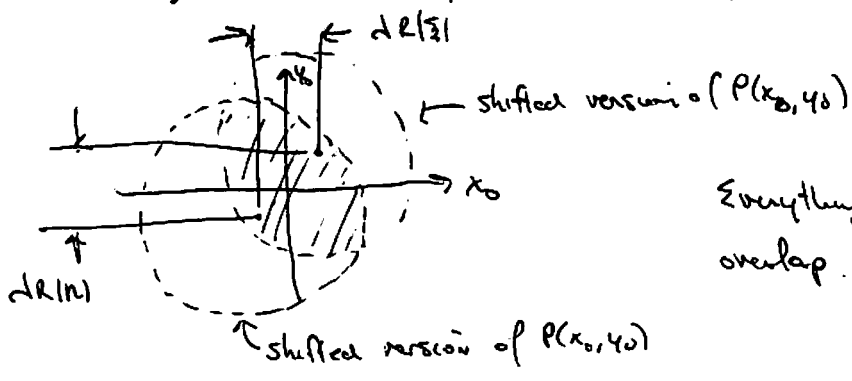 λR|ξ|
y₀
shifted version of P(x₀, y₀)
x₀
Everything
overlap.
λR|η|
shifted version of P(x₀, y₀)